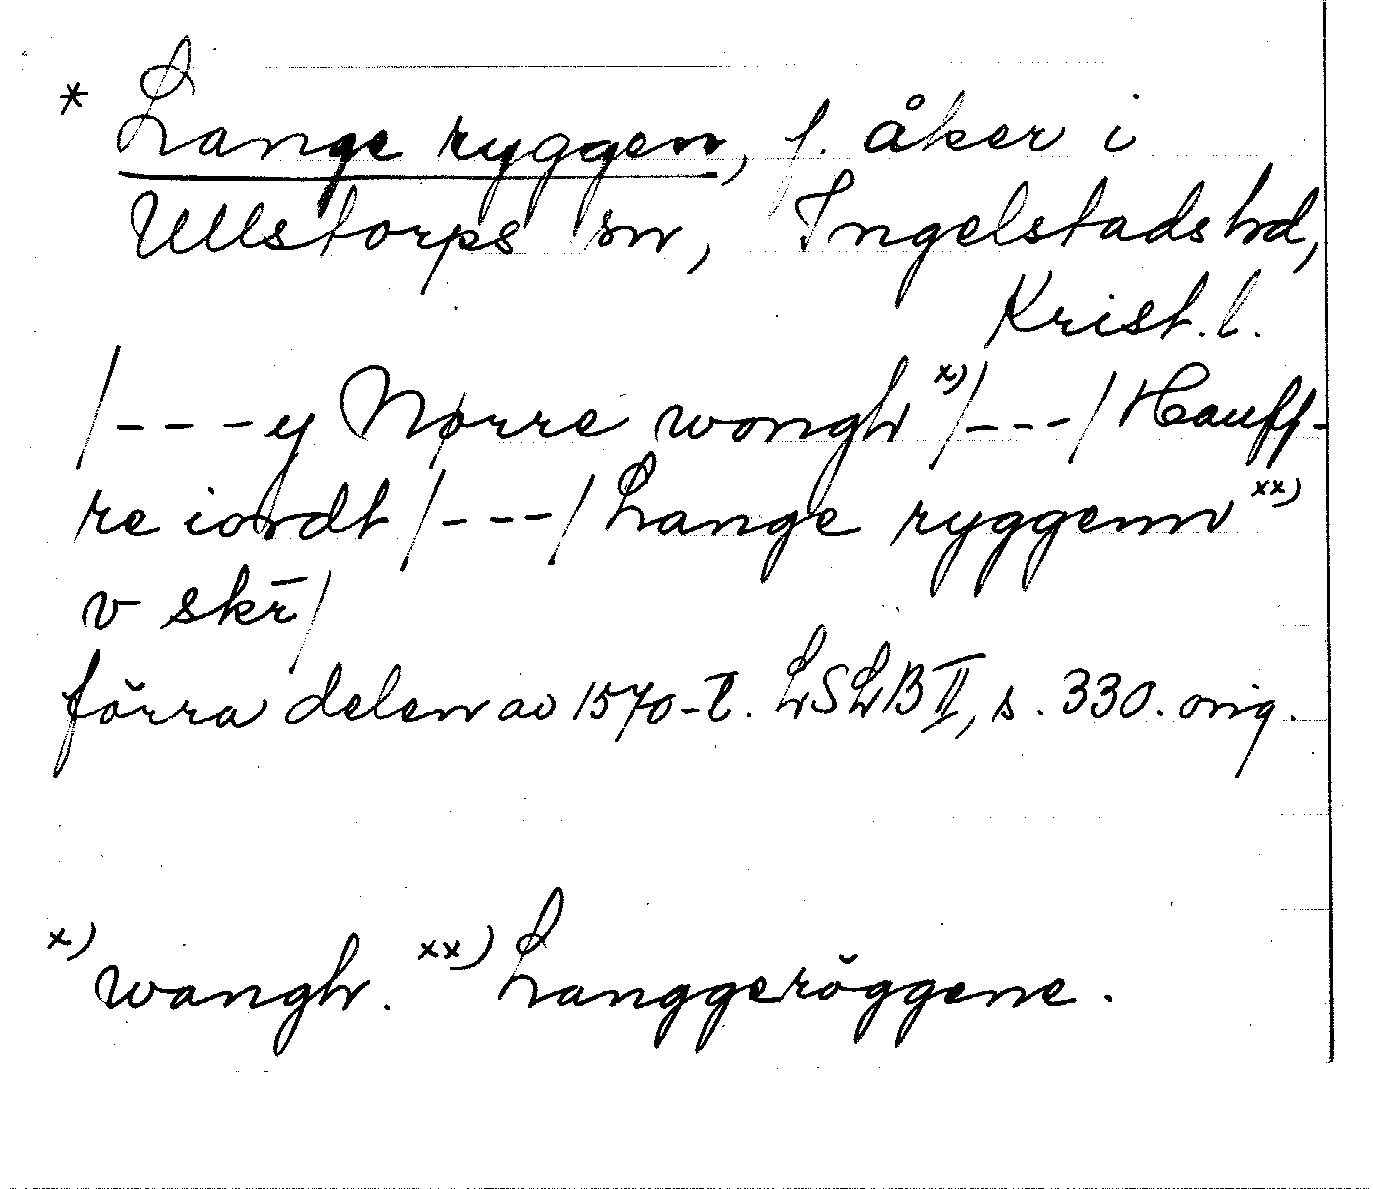 * Lange ryggen, f. åker i
Ullstorps sn, Ingelstads hd,
Krist. l.
/---y Nørre wongh x)/---/ Hauff-
re iordt /---/ Lange ryggenn xx)
v skr̄/
förra delen av 1570-t. LSLB II, s. 330. orig.
x) wangh. xx) Langgerŏggene.